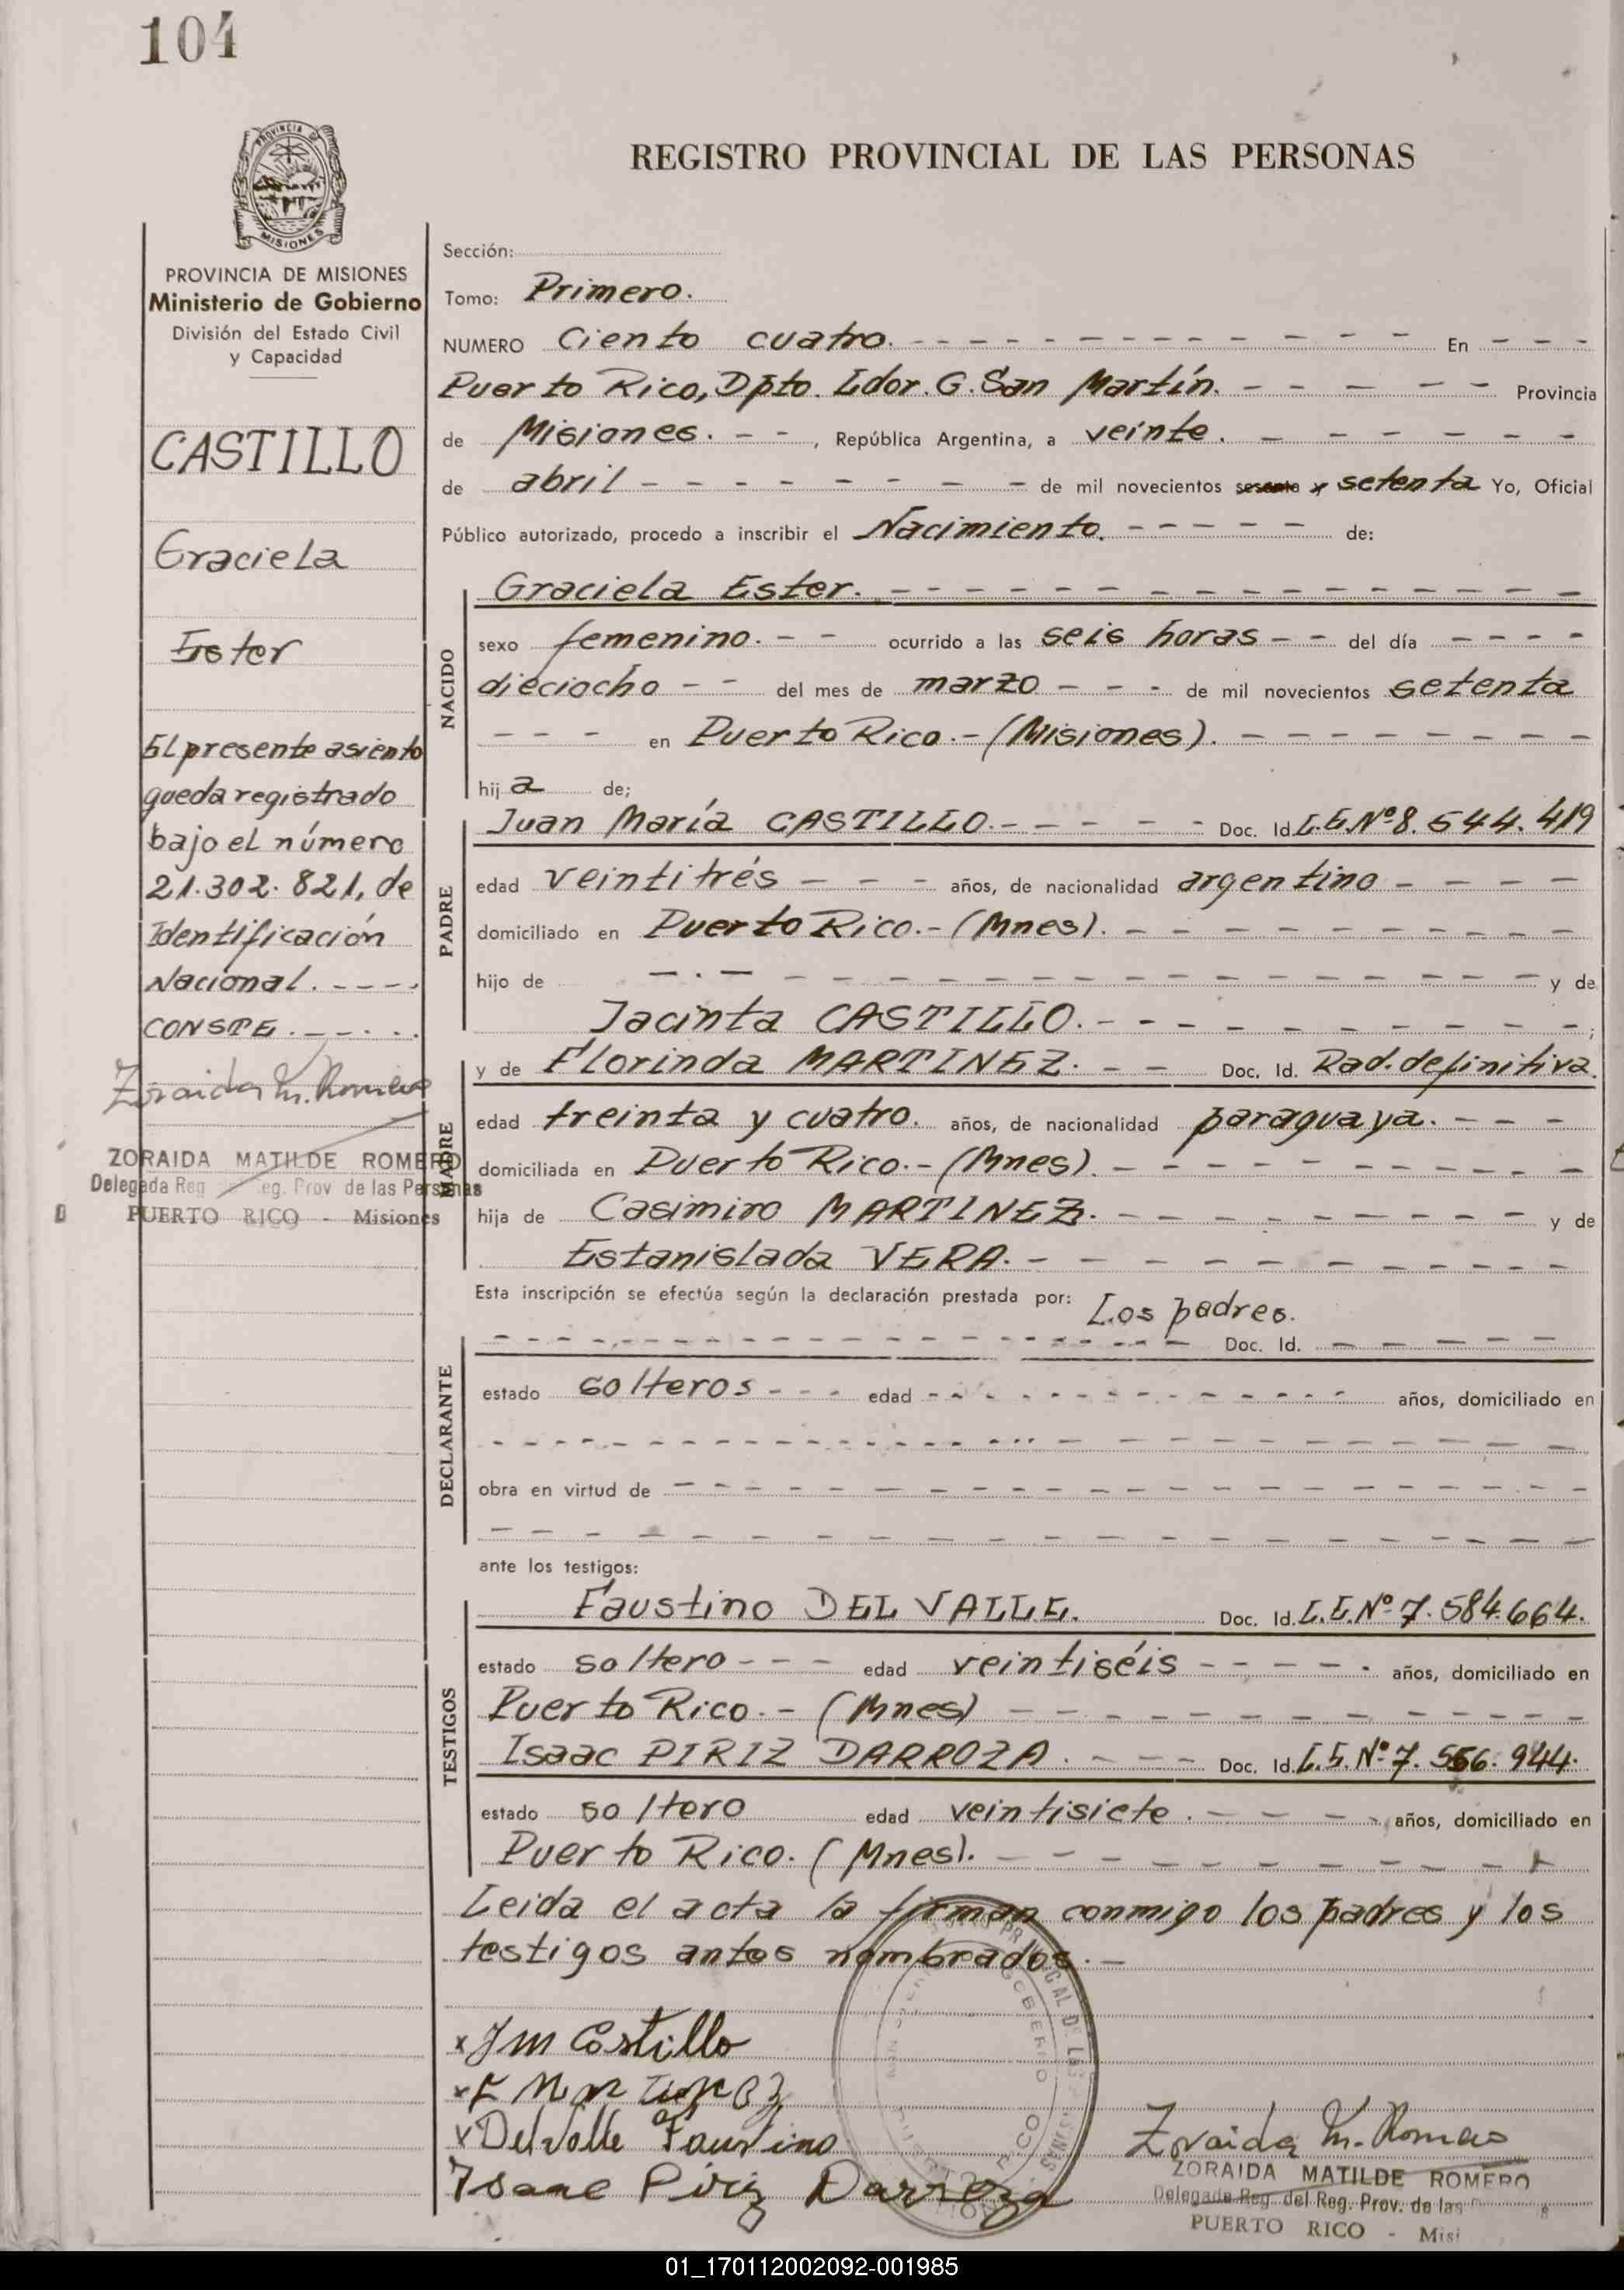 104
REGISTRO PROVINCIAL DE LAS PERSONAS
PROVINCIA DE
MISIONES
PROVINCIA DE MISIONES
Ministerio de Gobierno
División del Estado Civil
y Capacidad
CASTILLO
Graciela
Ester
El presente asiento
queda registrado
bajo el número
21.302.821, de
Identificación
Nacional. - - - -
CONSTE. - - - -
Zoraida M. Romero
ZORAIDA MATILDE ROMERO
Delegada Reg. del Reg. Prov de las Personas
PUERTO RICO - Misiones
Sección:
Tomo: Primero.
NUMERO Ciento cuatro. - - - En - - -
Puerto Rico, Dpto. Ldor. G. San Martín. - - - Provincia
de Misiones. - - , República Argentina, a veinte. - - -
de abril - - - de mil novecientos sesenta y setenta Yo, Oficial
Público autorizado, procedo a inscribir el Nacimiento. - - - de:
NACIDO
Graciela Ester. - - -
sexo femenino. - - ocurrido a las seis horas - - del día - - - -
dieciocho - - del mes de marzo - - - de mil novecientos setenta
- - - en Puerto Rico. - (Misiones). - - -
hij a de;
PADRE
Juan María CASTILLO. - - - Doc. Id. L.E.Nº 8.544.419
edad veintitrés - - - años, de nacionalidad argentino - - - -
domiciliado en Puerto Rico. - (Mnes). - - -
hijo de - . - - - - y de
Jacinta CASTILLO. - - - ;
MADRE
y de Florinda MARTINEZ. - - Doc. Id. Rad. definitiva.
edad treinta y cuatro. años, de nacionalidad paraguaya. - - -
domiciliada en Puerto Rico. - (Mnes). - - -
hija de Casimiro MARTINEZ. - - - y de
Estanislada VERA. - - -
Esta inscripción se efectúa según la declaración prestada por: Los padres.
DECLARANTE
- - - Doc. Id. - - -
estado solteros - - - edad - - - años, domiciliado en
- - -
obra en virtud de - - -
- - -
ante los testigos:
TESTIGOS
Faustino DEL VALLE. Doc. Id. L.E.Nº 7.584.664.
estado soltero - - - edad veintiséis - - - años, domiciliado en
Puerto Rico. - (Mnes) - - -
Isaac PIRIZ DARROZA. - - - Doc. Id. L.E.Nº 7.556.944.
estado soltero edad veintisiete. - - - años, domiciliado en
Puerto Rico. (Mnes). - - -
Leida el acta la firman conmigo los padres y los
testigos antes nombrados. -
x JM Castillo
x F Martinez
x Del Valle Faustino
Isaac Piriz Darroza
Zoraida M. Romero
ZORAIDA MATILDE ROMERO
Delegada Reg. del Reg. Prov. de las
PUERTO RICO - Misi
01_170112002092-001985